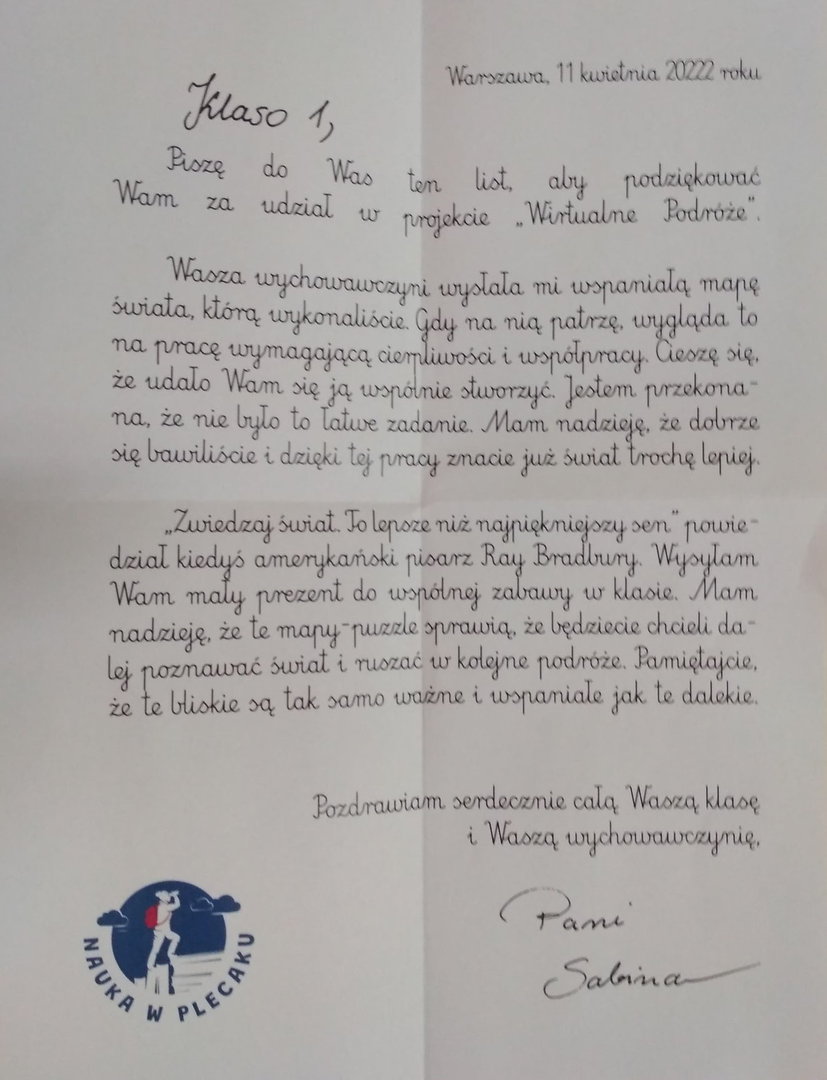 Warszawa, 11 kwietnia 20222 roku
Klaso 1,
Piszę do Was ten list, aby podziękować
Wam za udział w projekcie „Wirtualne Podróże”.
Wasza wychowawczyni wysłała mi wspaniałą mapę
świata, którą wykonaliście. Gdy na nią patrzę, wygląda to
na pracę wymagającą cierpliwości i współpracy. Cieszę się,
że udało Wam się ją wspólnie stworzyć. Jestem przekona-
na, że nie było to łatwe zadanie. Mam nadzieję, że dobrze
się bawiliście i dzięki tej pracy znacie już świat trochę lepiej.
„Zwiedzaj świat. To lepsze niż najpiękniejszy sen” powie-
dział kiedyś amerykański pisarz Ray Bradbury. Wysyłam
Wam mały prezent do wspólnej zabawy w klasie. Mam
nadzieję, że te mapy-puzzle sprawią, że będziecie chcieli da-
lej poznawać świat i ruszać w kolejne podróże. Pamiętajcie,
że te bliskie są tak samo ważne i wspaniałe jak te dalekie.
Pozdrawiam serdecznie całą Waszą klasę
i Waszą wychowawczynię,
Pani
Sabina
NAUKA W PLECAKU